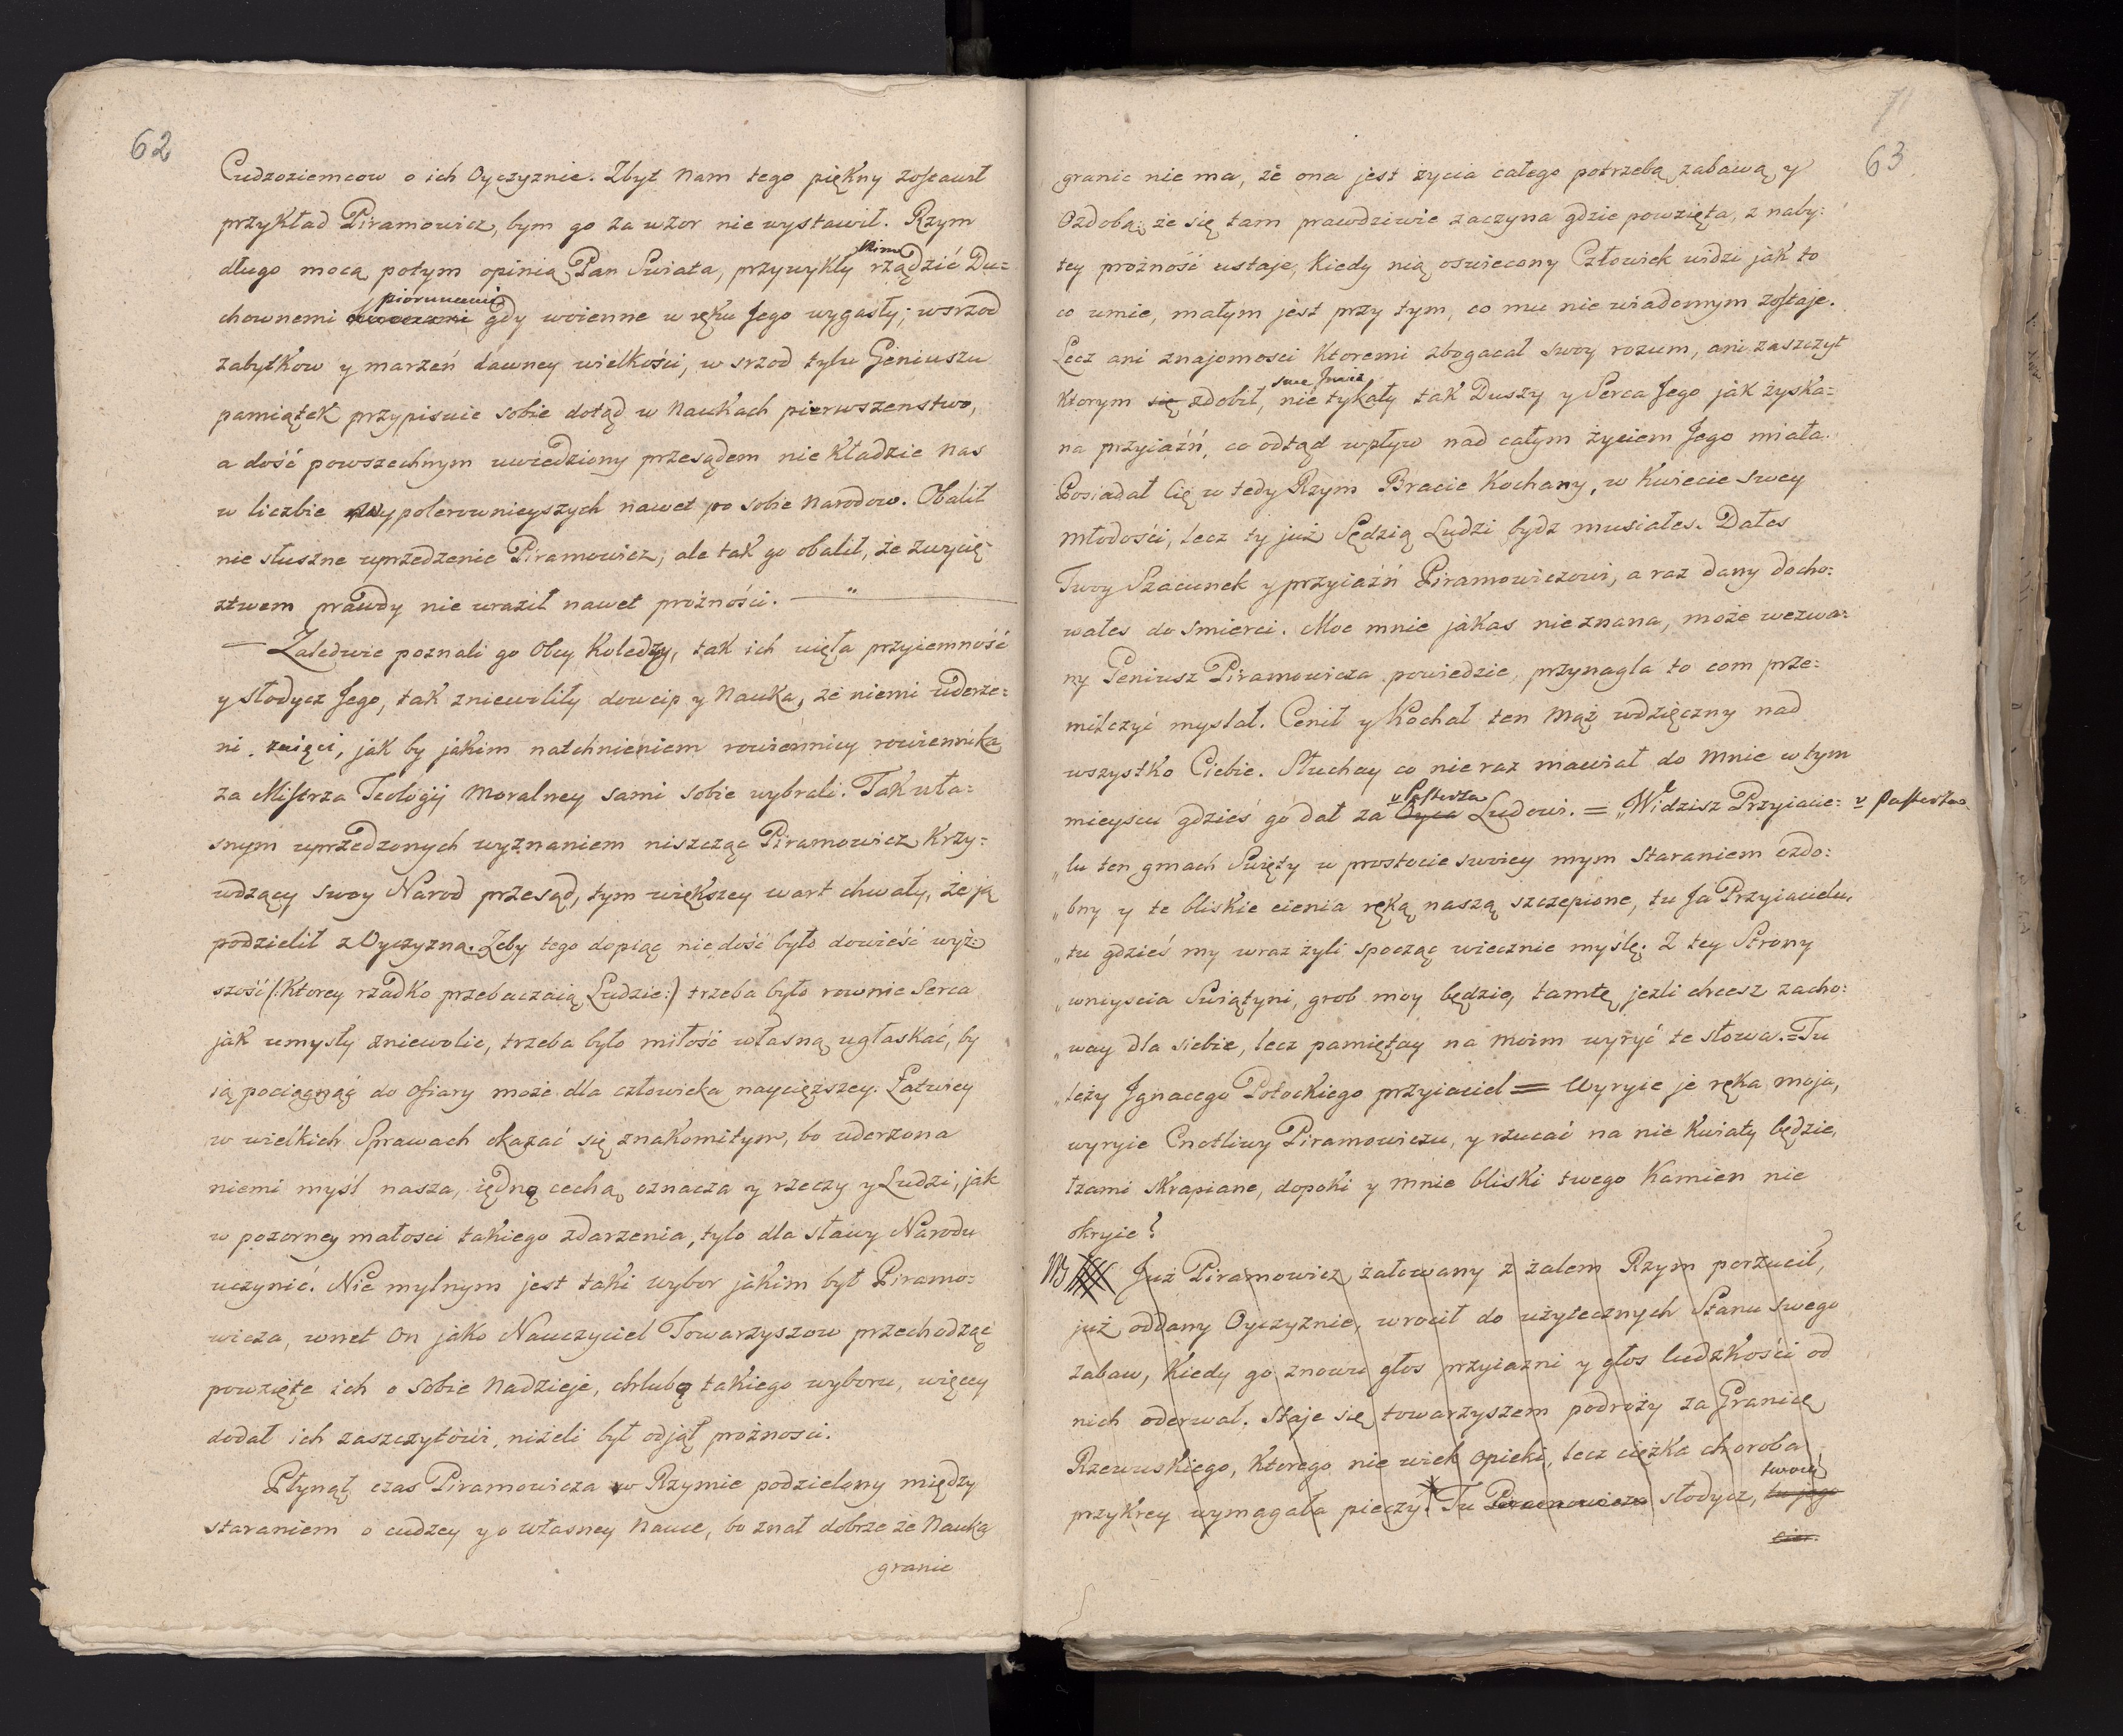 62
Cudzoziemcow o ich Oyczyznie. Zbyt Nam tego piękny zostawił
przykład Piramowicz, bym go za wzor nie wystawił. Rzym
długo mocą potym opinią Pan Swiata, przywykły nim rządzić Du=
chownemi piorunami gdy woienne w ręku Jego wygasły; wsrzod
zabytkow y marzeń dawney wielkości, w srzod tylu Geniuszu
pamiątek przypisuie sobie dotąd w Naukach pierwszenstwo,
a dość powszechnym uwiedziony przesądem nie kładzie nas
w liczbie wypolerownieyszych nawet po sobie Narodow. Obalił
nie słuszne uprzedzenie Piramowicz, ale tak go obalił, że zwycię-
ztwem prawdy nie uraził nawet prożności. — " —
— Zaledwie poznali go Obcy Koledzy, tak ich uięła przyiemność
y słodycz Jego, tak zniewoliły dowcip y Nauka, że niemi uderze=
ni. zaięci, jak by jakim natchnieniem rowiennicy rowiennika
za Mistrza Teologij Moralney sami sobie wybrali. Tak wła-
snym uprzedzonych wyznaniem niszcząc Piramowicz Krzy=
wdzący swoy Narod przesąd, tym większey wart chwały, że ją
podzielił z Oyczyzną. Żeby tego dopiąć nie dość było dowieść wyż=
szość /:Ktorey rzadko przebaczaią Ludzie:/ trzeba było rownie Serca
jak umysły zniewolic, trzeba było miłość własną ugłaskać, by
ią pociągnąć do ofiary może dla człowieka naycięższey. Łatwiey
w wielkich Sprawach okazać się znakomitym, bo uderzona
niemi myśl nasza, iędną cechą oznacza y rzeczy y Ludzi, jak
w pozorney małosci takiego zdarzenia, tylo dla sławy Narodu
uczynić. Nie mylnym jest taki wybor jakim był Piramo=
wicza, wnet On jako Nauczyciel Towarzyszow przechodząc
powzięte ich o sobie Nadzieje, chlubą takiego wyboru, więcey
dodał ich zaszczytowi, niżeli był odjął prożnosci.
Płynął czas Piramowicza w Rzymie podzielony między
staraniem o cudzey y o własney Nauce, bo znał dobrze że Nauka
granic
71
63
granic nie ma, że ona jest życia całego potrzebą, zabawą, y
Ozdobą; że się tam prawdziwie zaczyna gdzie powzięta, z naby:
tey prożność ustaje, Kiedy nią oswiecony Człowiek widzi jak to
co umie, małym jest przy tym, co mu nie wiadomym zostaje.
Lecz ani znajomosci Ktoremi zbogacał swoy rozum, ani zaszczyt
Ktorym się zdobił, nie tykały tak Duszy y Serca Jego jak zyska=
na przyiaźń, co odtąd wpływ nad całym życiem Jego miała.
Posiadał Cię w tedy Rzym Bracie Kochany, w Kwiecie swey
młodości, lecz ty już Sędzią Ludzi bydz musiałes. Dałes
Twoy Szacunek y przyiaźń Piramowiczowi, a raz dany docho:
wałes do smierci. Moc mnie jakas nie znana, może wezwa=
ny Geniusz Piramowicza powiedzie, przynagla to com prze=
milczyć myslał. Cenił y Kochał ten Mąż wdzięczny nad
wszystko Ciebie. Słuchay co nie raz mawiał do Mnie w tym
mieyscu gdzieś go dał za v Pasterza Oyca Ludowi. = „Widzisz Przyiacie= v Pasterza
„lu ten gmach Swięty w prostocie swoiey mym Staraniem ozdo:
„bny y te bliskie cienia ręką naszą szczepione, tu Ja Przyiacielu,
„tu gdzieś my wraz żyli spocząc wiecznie myślę. Z tey Strony
„wniyscia Swiątyni, grob moy będzie, tamtę jeżli chcesz zacho:
„way dla siebie, lecz pamiętay na Moim wyryć te słowa. = Tu
„leży Jgnacego Potockiego przyiaciel = Wyryie je ręka moja,
wyryie Cnotliwy Piramowiczu, y rzucać na nie Kwiaty będzie,
łzami skrapiane, dopoki y Mnie bliski twego Kamien nie
okryie?
Już Piramowicz żałowany z żalem Rzym porzucił,
już oddany Oyczyznie, wrocił do użytecznych Stanu swego
zabaw, Kiedy go znowu głos przyiazni y głos ludzkości od
nich oderwał. Staje się towarzyszem podroży za Granicę
Rzewuskiego, Ktorego nie wiek opieki, lecz ciężka choroba
przykrey wymagała pieczy. Tu Piramowicza słodycz, twoiey tu jego
cier.